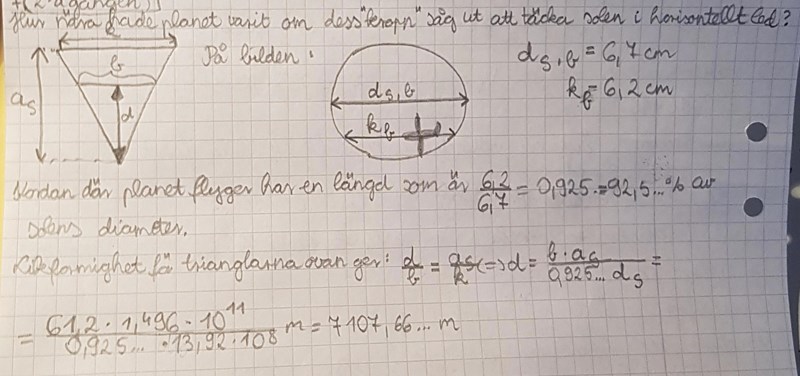 Hur nära hade planet varit om dess "kropp" såg ut att täcka solen i horisontellt led?
På bilden:
d_s,b = 6,7 cm
k_b = 6,2 cm
b
a_s
d
d_s,b
k_b
Kordan där planet flyger har en längd som är 6,2/6,7 = 0,925.. = 92,5...% av
solens diameter.
Likformighet för trianglarna ovan ger: d/b = a_s/k <=> d = b · a_s / 0,925... d_s =
= 61,2 · 1,496 · 10^11 / 0,925... · 13,92 · 10^8 m = 7107,66... m